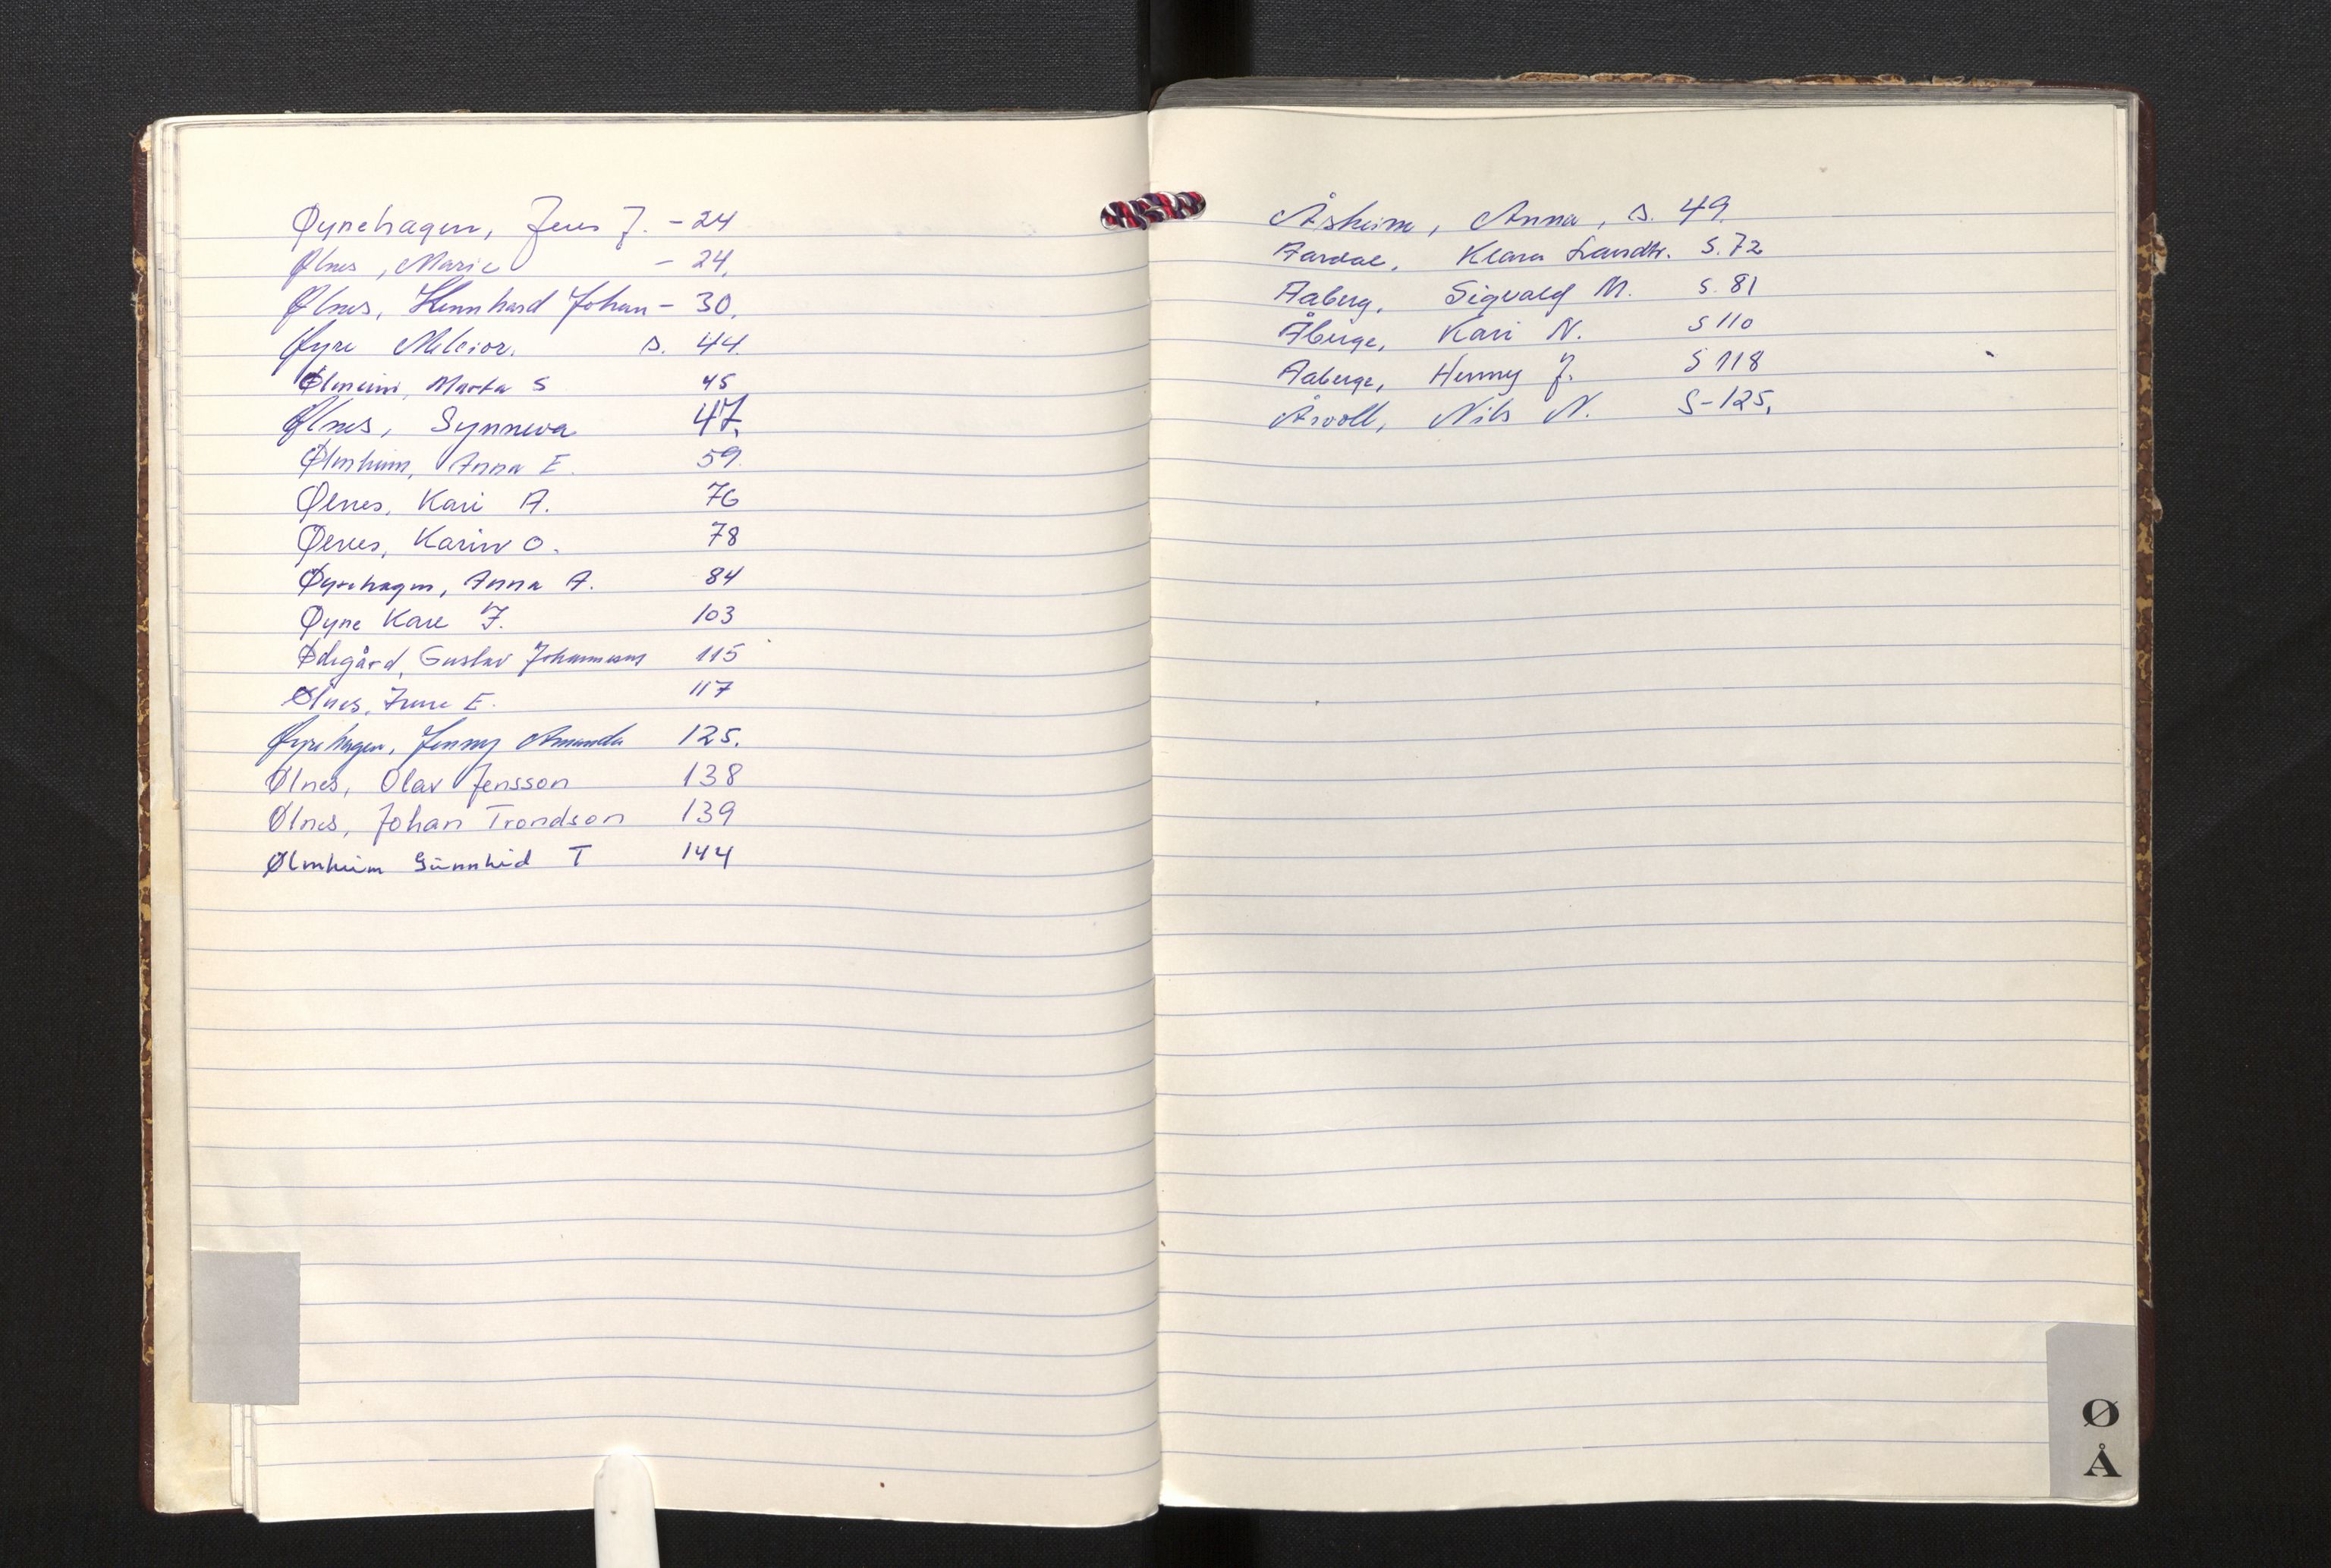 Øyrehagen, Jens J. - 24
Ølnes, Marie - 24.
Ølnes, Johan - 30.
Øyre Melcior. s. 44.
Ølmheim, Marta S 45
Ølnes, Synneva 47.
Ølmheim, Anna E. 59.
Ølnes, Kari A. 76
Ølnes, Karin O. 78
Øyrehagen, Anna A. 84
Øyre Kare J. 103
Ødegård, Gustav Johannesen 115
Ølnes, E. 117
Øyrehagen, Jenny Amanda 125.
Ølnes, Olav Jensson 138
Ølnes, Johan Trondson 139
Ølmheim Gunnhild T 144
Åsheim, Anna, s. 49.
Aardal, Klara S. 72
Aaberg, Sigvald M. S. 81
Åberge, Kari N. S 110
Aaberge, Henny J. S 118
Årvoll, Nils N. S-125.
Ø
Å